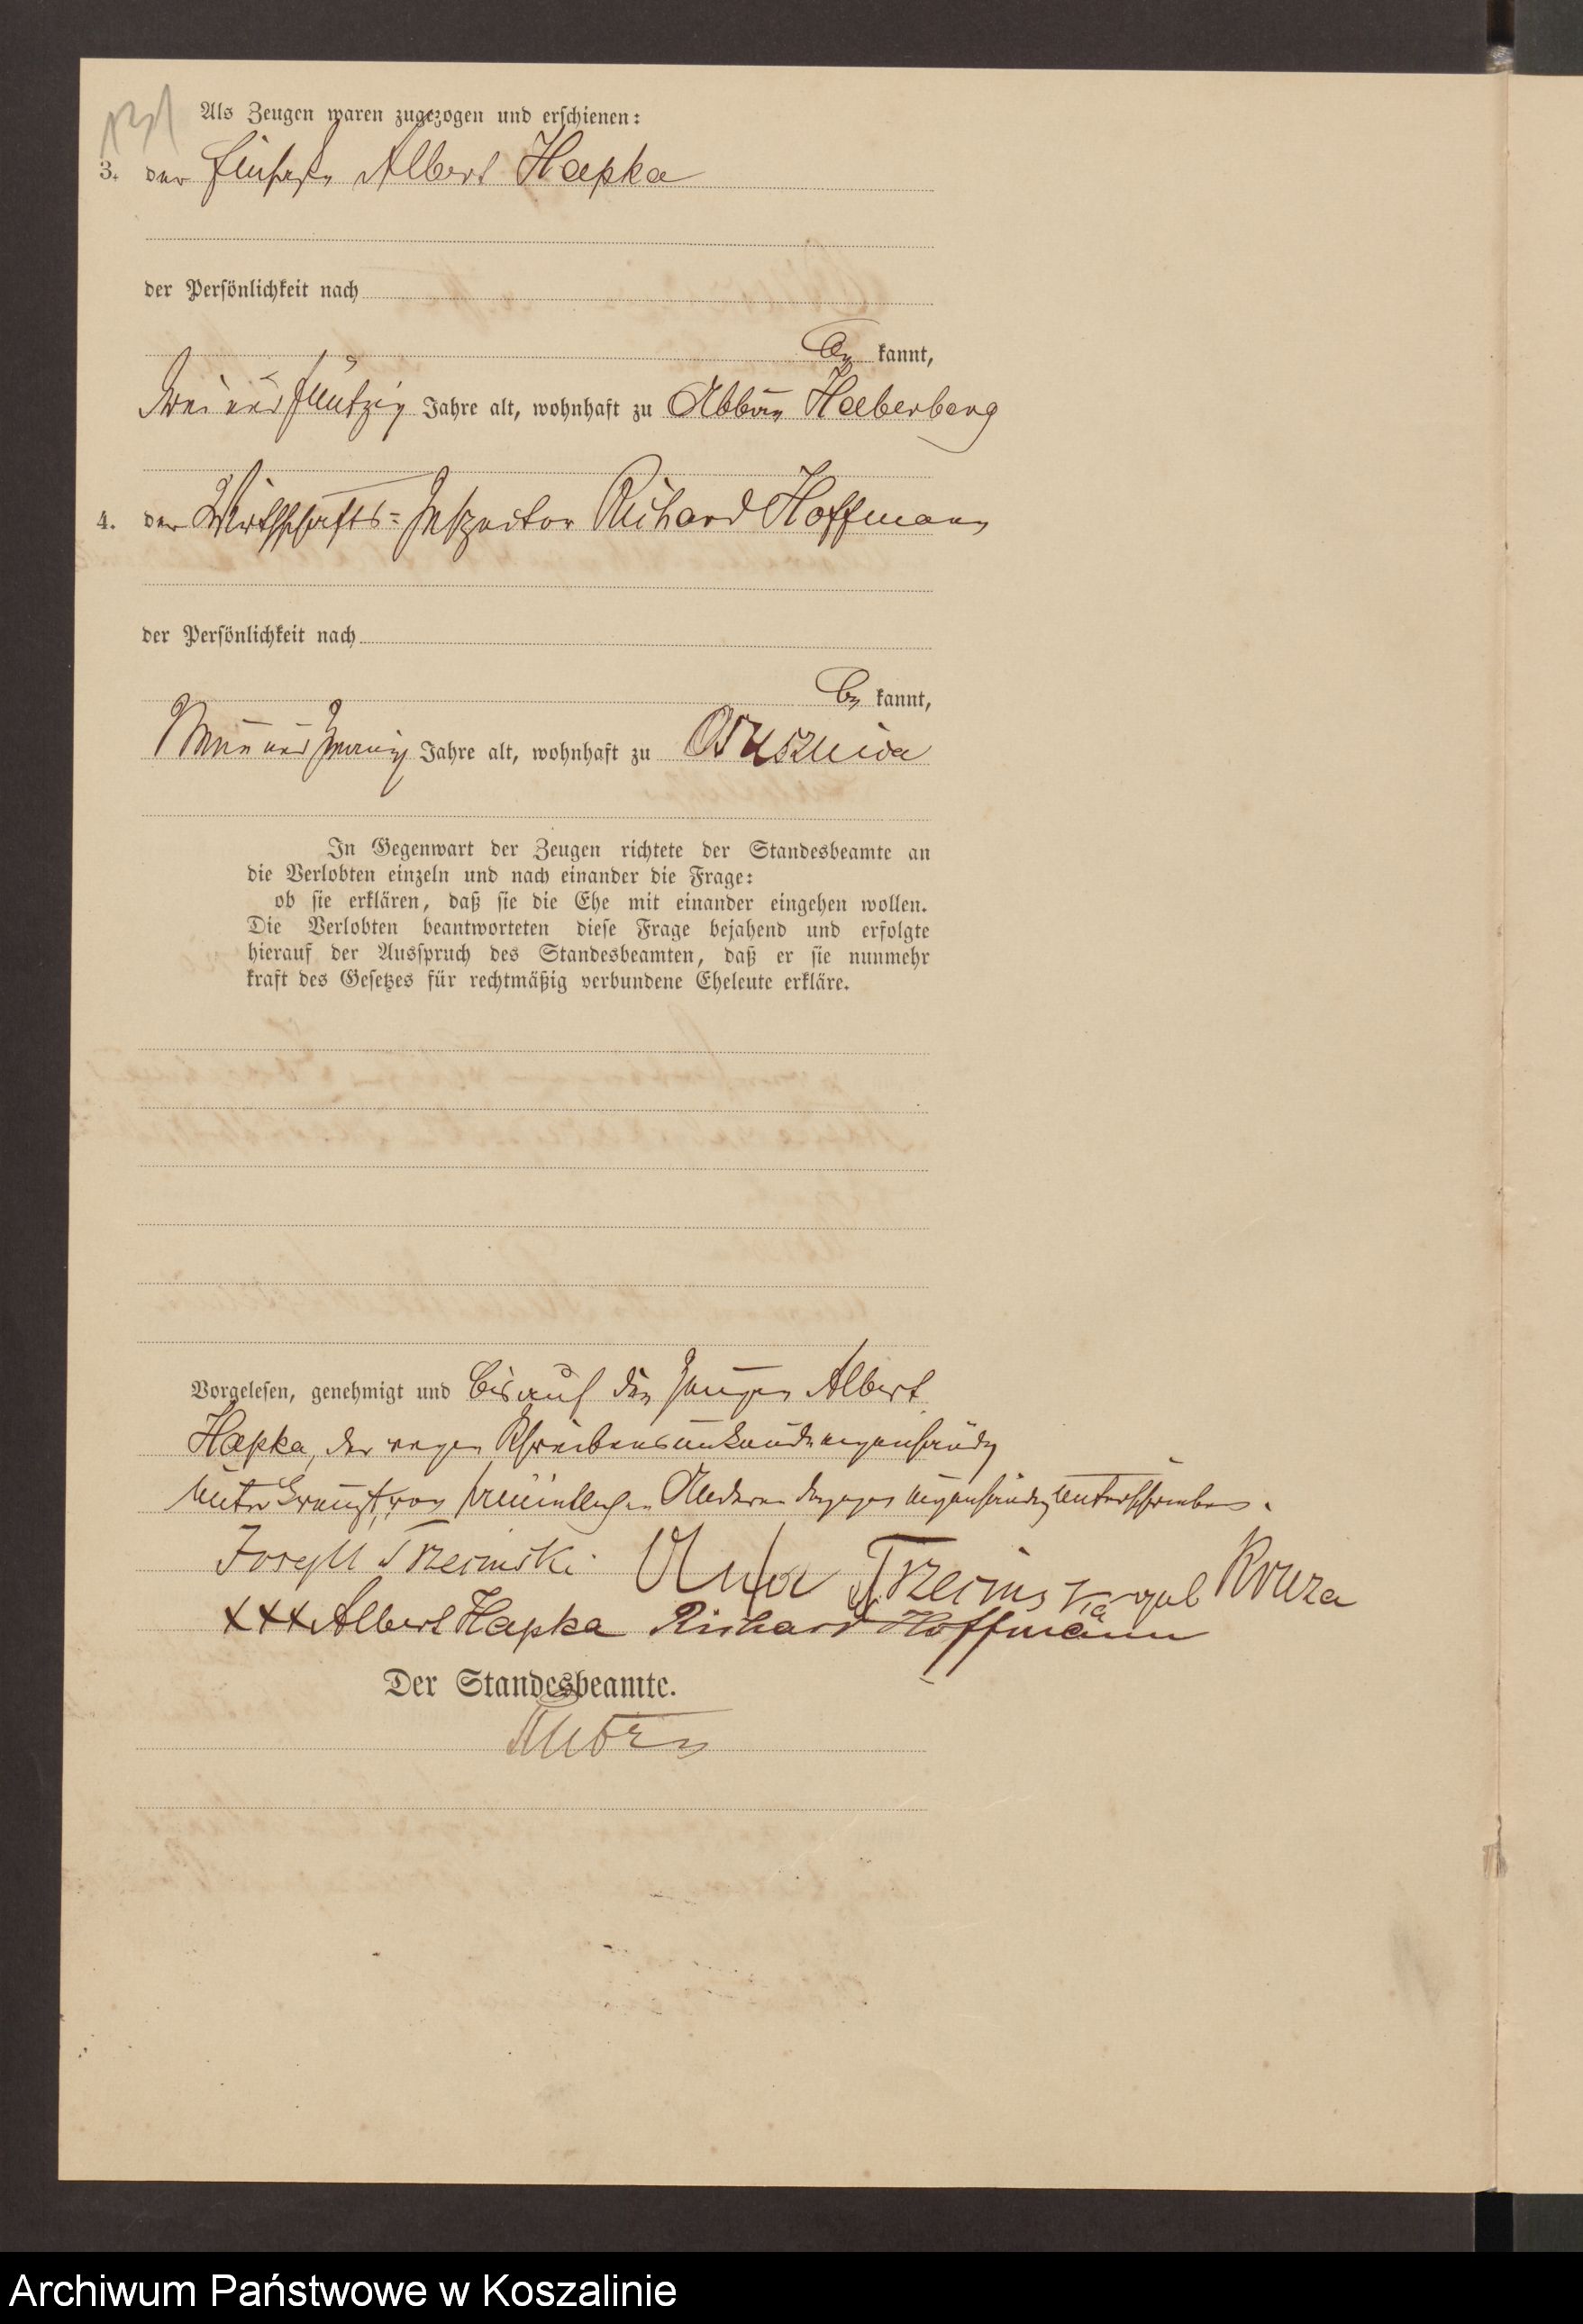 Als Zeugen waren zugezogen und erschienen:
3. der Albert Hapka
der Persönlichkeit nach
be kannt,
drei und fünfzig Jahre alt, wohnhaft zu Abbau Haeberberg
4. der Wirthschafts-Inspector Richard Hoffmann
der Persönlichkeit nach
be kannt,
Neun und zwanzig Jahre alt, wohnhaft zu
In Gegenwart der Zeugen richtete der Standesbeamte an
die Verlobten einzeln und nach einander die Frage:
ob sie erklären, daß sie die Ehe mit einander eingehen wollen.
Die Verlobten beantworteten diese Frage bejahend und erfolgte
hierauf der Ausspruch des Standesbeamten, daß er sie nunmehr
kraft des Gesetzes für rechtmäßig verbundene Eheleute erkläre.
Vorgelesen, genehmigt und bis auf den Zeugen Albert
Hapka, der wegen Schreibensunkunde
unterkreuzt, von sämmtlichen Anderen dagegen eigenhändig unterschrieben.
Joseph Trzeinski. Trzeinska geb
+++ Albert Hapka Richard Hoffmann
Der Standesbeamte.
Archiwum Państwowe w Koszalinie